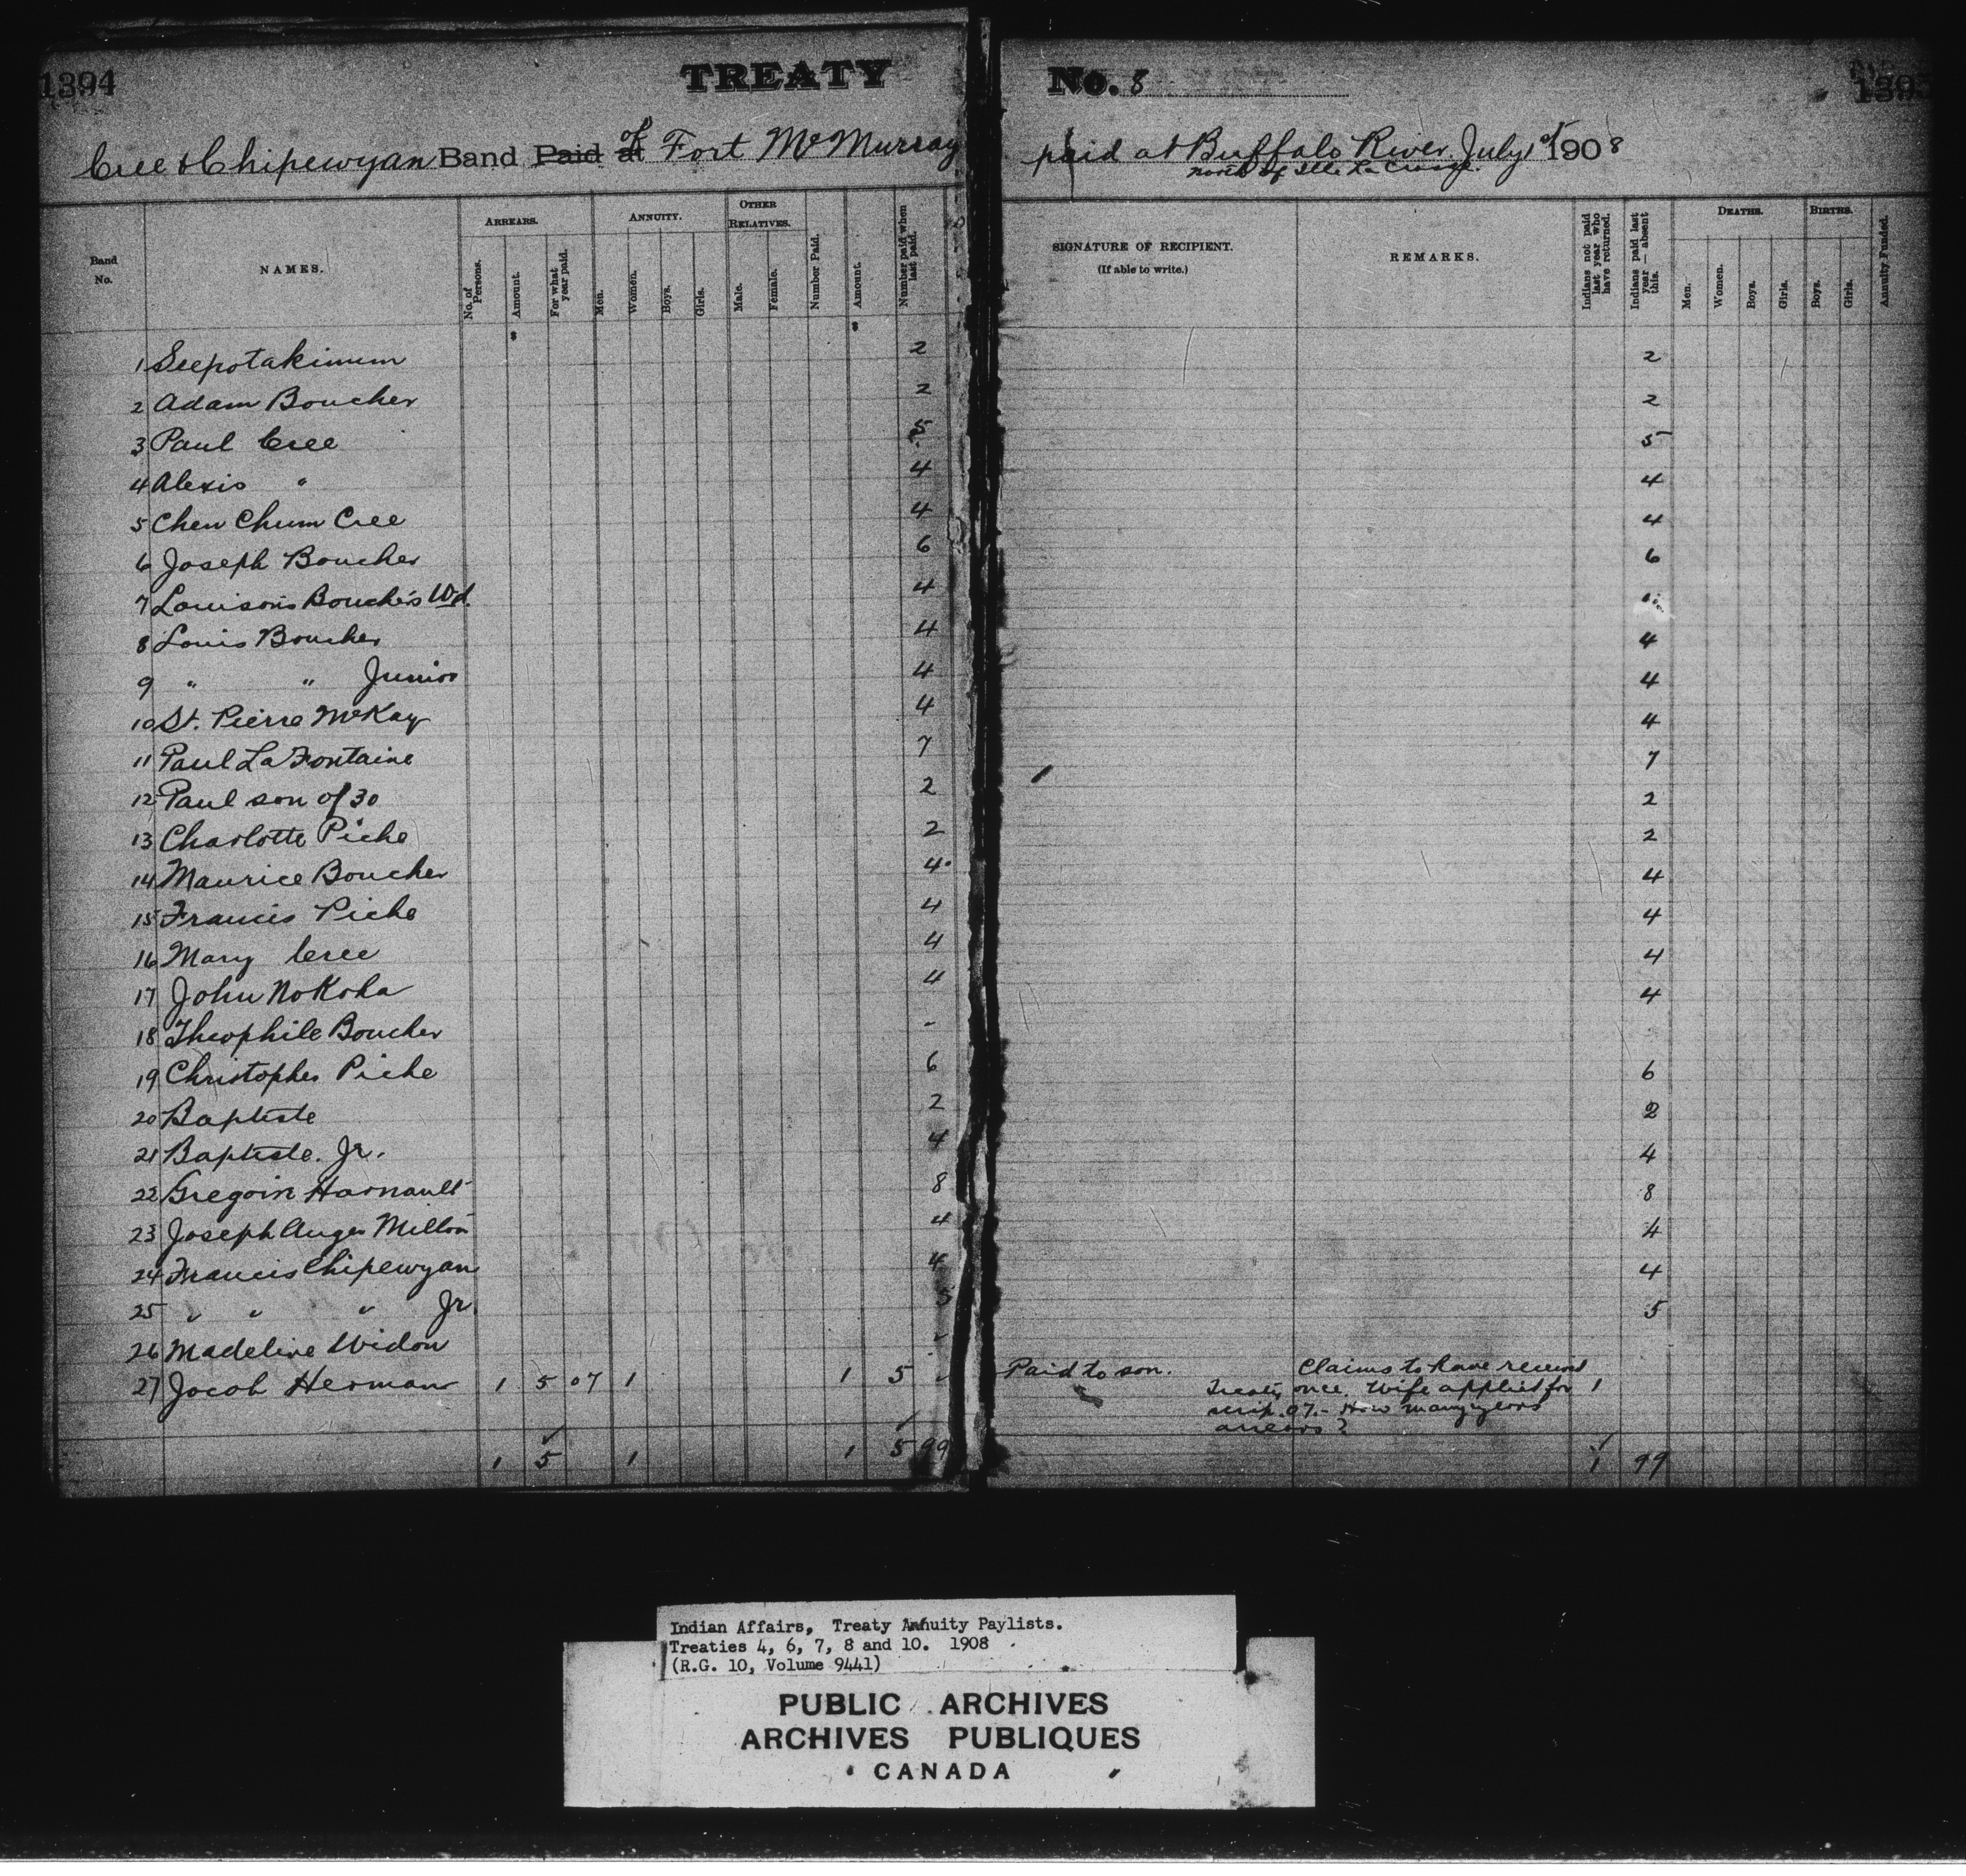 1394 TREATY No. 8
Cree & Chipewyan Band Paid at of Fort McMurray paid at Buffalo River July 1st 1908
north of Ile La Crosse.
Band No. NAMES. ARREARS. No. of Persons. Amount. For what year paid. ANNUITY. Men. Women. Boys. Girls. OTHER RELATIVES. Male. Female. Number Paid. Amount. Number paid when last paid. SIGNATURE OF RECIPIENT. (If able to write.) REMARKS. Indians not paid last year who have returned. Indians paid last year — absent this. DEATHS. Men. Women. Boys. Girls. BIRTHS. Boys. Girls. Annuity Funded.
1 Seepotakinum 2 2
2 Adam Boucher 2 2
3 Paul Cree 5 5
4 Alexis " 4 4
5 Chew Chum Cree 4 4
6 Joseph Boucher 6 6
7 Louison's Boucher's Wd. 4
8 Louis Boucher 4 4
9 " " Junior 4 4
10 St. Pierre McKay 4 4
11 Paul La Fontaine 7 7
12 Paul son of 30 2 2
13 Charlotte Piche 2 2
14 Maurice Boucher 4 4
15 Francis Piche 4 4
16 Mary Cree 4 4
17 John Nokoha 4 4
18 Theophile Boucher -
19 Christopher Piche 6 6
20 Baptiste 2 2
21 Baptiste. Jr. 4 4
22 Gregoin Harnault 8 8
23 Joseph Auger Millon 4 4
24 Francis Chipewyan 4 4
25 " " " Jr. 5 5
26 Madeline Widow
27 Jacob Herman 1 5 07 1 1 5 Paid to son. Claims to have received
Treaty once. Wife applied for 1
scrip. 07. - How many years
arrears?
1 5 1 1 5 99 1 99
Indian Affairs, Treaty Annuity Paylists.
Treaties 4, 6, 7, 8 and 10. 1908
(R.G. 10, Volume 9441)
PUBLIC ARCHIVES
ARCHIVES PUBLIQUES
CANADA